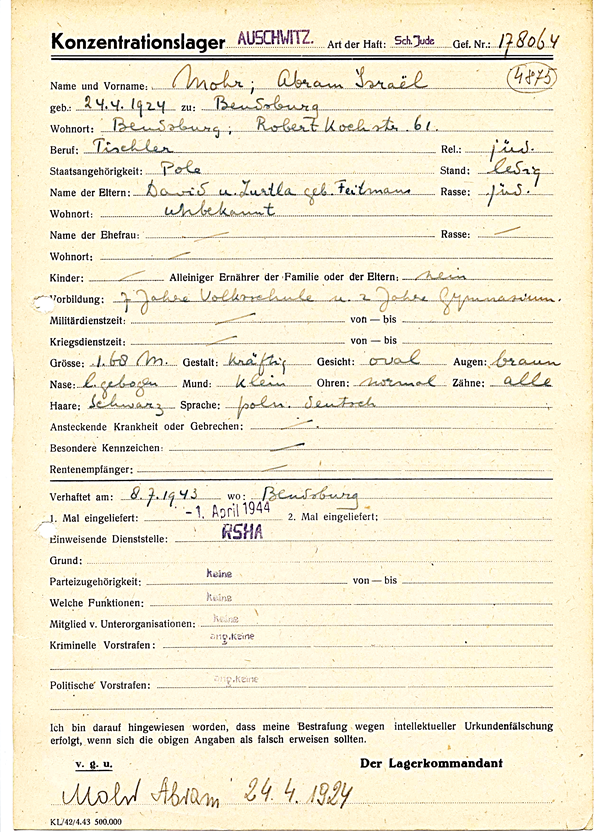 Konzentrationslager AUSCHWITZ. Art der Haft: Sch. Jude Gef. Nr.: 178064
4875
Name und Vorname: Mohr; Abram Israël
geb.: 24.4.1924 zu: Bendsburg
Wohnort: Bendsburg; Robert Kochstr. 61.
Beruf: Tischler Rel.: jüd.
Staatsangehörigkeit: Pole Stand: ledig
Name der Eltern: David u. geb. Rasse: jüd.
Wohnort: unbekannt
Name der Ehefrau: — Rasse: —
Wohnort: —
Kinder: — Alleiniger Ernährer der Familie oder der Eltern: nein
Vorbildung: 7 Jahre Volksschule u. 2 Jahre Gymnasium.
Militärdienstzeit: — von — bis
Kriegsdienstzeit: — von — bis
Grösse: 1.68 m. Gestalt: kräftig Gesicht: oval Augen: braun
Nase: gebogen Mund: klein Ohren: normal Zähne: alle
Haare: Schwarz Sprache: poln. deutsch
Ansteckende Krankheit oder Gebrechen: —
Besondere Kennzeichen: —
Rentenempfänger: —
Verhaftet am: 8.7.1943 wo: Bendsburg
1. Mal eingeliefert: -1. April 1944 2. Mal eingeliefert:
Einweisende Dienststelle: RSHA
Grund:
Parteizugehörigkeit: keine von — bis
Welche Funktionen: keine
Mitglied v. Unterorganisationen: keine
Kriminelle Vorstrafen: ang.keine
Politische Vorstrafen: ang.keine
Ich bin darauf hingewiesen worden, dass meine Bestrafung wegen intellektueller Urkundenfälschung
erfolgt, wenn sich die obigen Angaben als falsch erweisen sollten.
v. g. u. Der Lagerkommandant
Mohr Abram 24.4.1924
KL/42/4.43 500.000